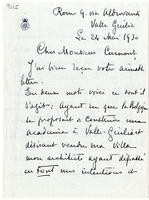 9215
Rome 9. via Aldrovandi
Valle Giulia
Le 24 Mai 1930
Cher Monsieur Cumont
J'ai bien reçu votre aimable
lettre.
En deux mots voici ce dont il
s'agit: ayant su que la Belgique
se proposait de construire une
académie à Valle Giulia et
désirant vendre ma villa
mon architecte ayant dépassé
en tout mes intentions et